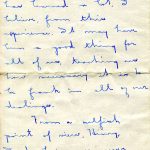 has learned a lot, I
believe, from this
experience. It may have
been a good thing for
all of us, teaching us
how necessary it is to
be frank in all of our
dealings.
From a selfish
point of view, Henry,